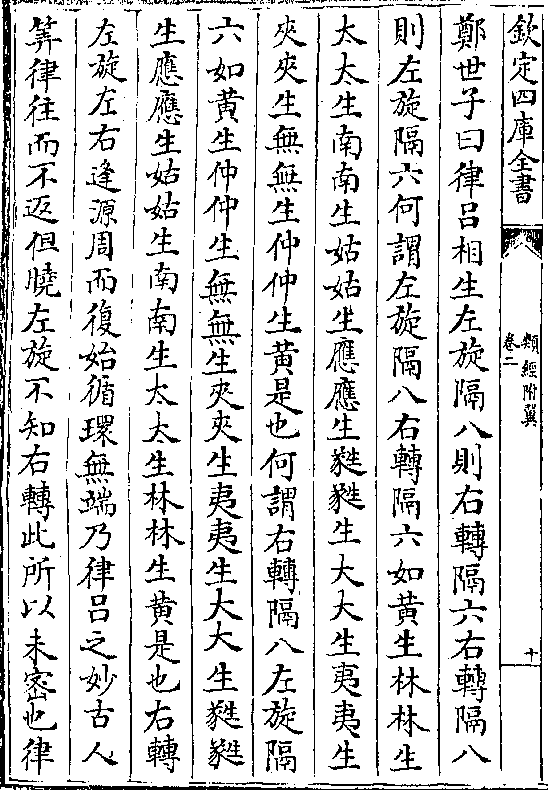 欽定四庫全書
類經附翼
卷二
十
鄭世子曰律呂相生左旋隔八則右轉隔六右轉隔八
則左旋隔六何謂左旋隔八右轉隔六如黃生林林生
太太生南南生姑姑生應應生蕤蕤生大大生夷夷生
夾夾生無無生仲仲生黃是也何謂右轉隔八左旋隔
六如黃生仲仲生無無生夾夾生夷夷生大大生蕤蕤
生應應生姑姑生南南生太太生林林生黃是也右轉
左旋左右逢源周而復始循環無端乃律呂之妙古人
筭律往而不返但曉左旋不知右轉此所以未密也律